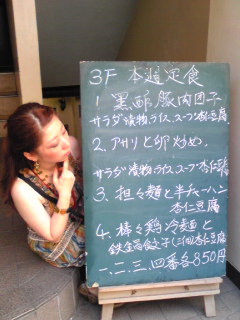 3F 本週定食
1 黒酢豚肉団子
サラダ漬物、ライス、スープ杏仁豆腐
2. アサリと卵炒め.
サラダ漬物、ライス、スープ・杏仁豆腐
3. 担々麺と半チャーハン
杏仁豆腐
4. 棒々鶏冷麺と
鉄鍋餃子(三個杏仁豆腐
一、二、三、四番各850円